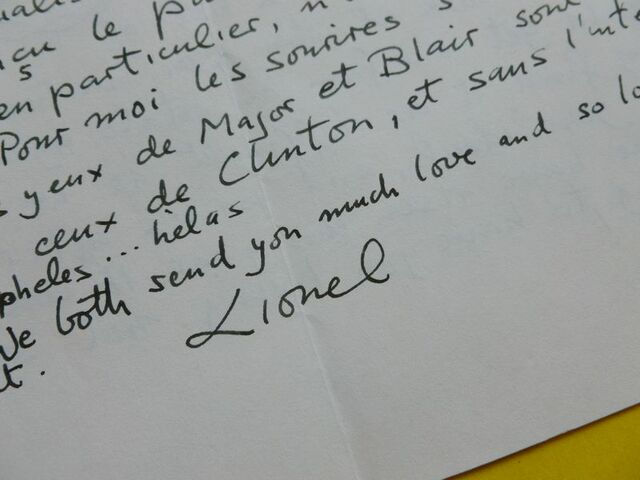 le pa
en particulier, n
Pour moi les sourires s
yeux de Major et Blair sont
ceux de Clinton, et sans l'inte
pheles... hèlas
We both send you much love and so lo
t.
Lionel